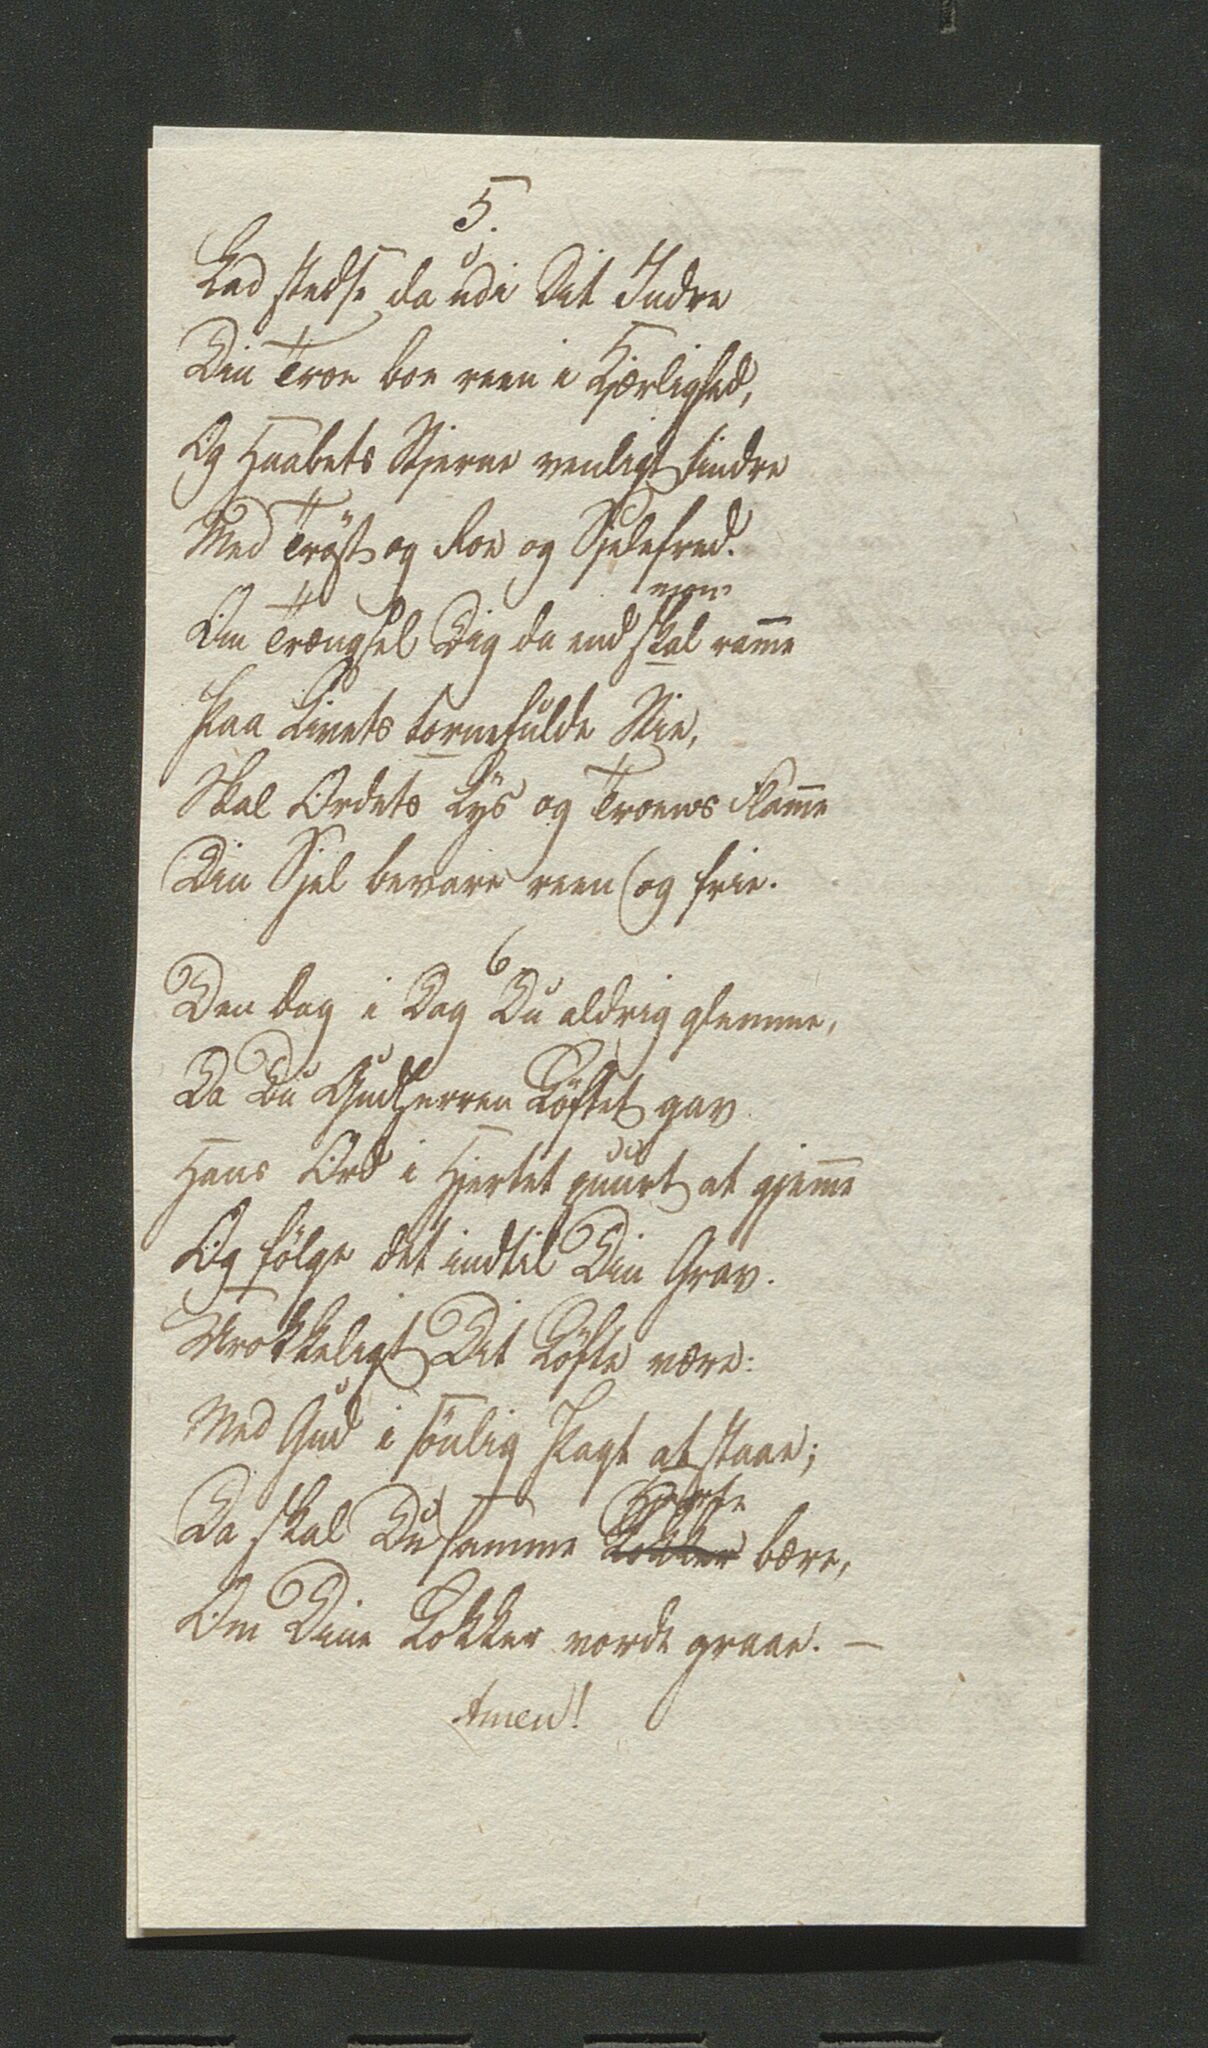 5.
Lad stedse da udi Dit Indre
Din Troe boe reen i Kjærlighed,
Og Haabets Stjerne venligt tindre
Med Trøst og Roe og Sjelefred.
Om Trængsel Dig da end skal ramme
Paa Livets tornefulde Stie,
Skal Ordets Lys og Troens Flamme
Din Sjel bevare reen og frie.
6
Den Dag i Dag Du aldrig glemme,
Da Du Gud Herren Løftet gav
Hans Ord i Hjertet puurt at gjemme
Og følge det indtil Din Grav.
Urokkeligt Dit Løfte være:
Med Gud i sønlig Pagt at staae;
Da skal Du samme Hjerte bære,
Om Dine Lokker vorde graae. —
Amen!